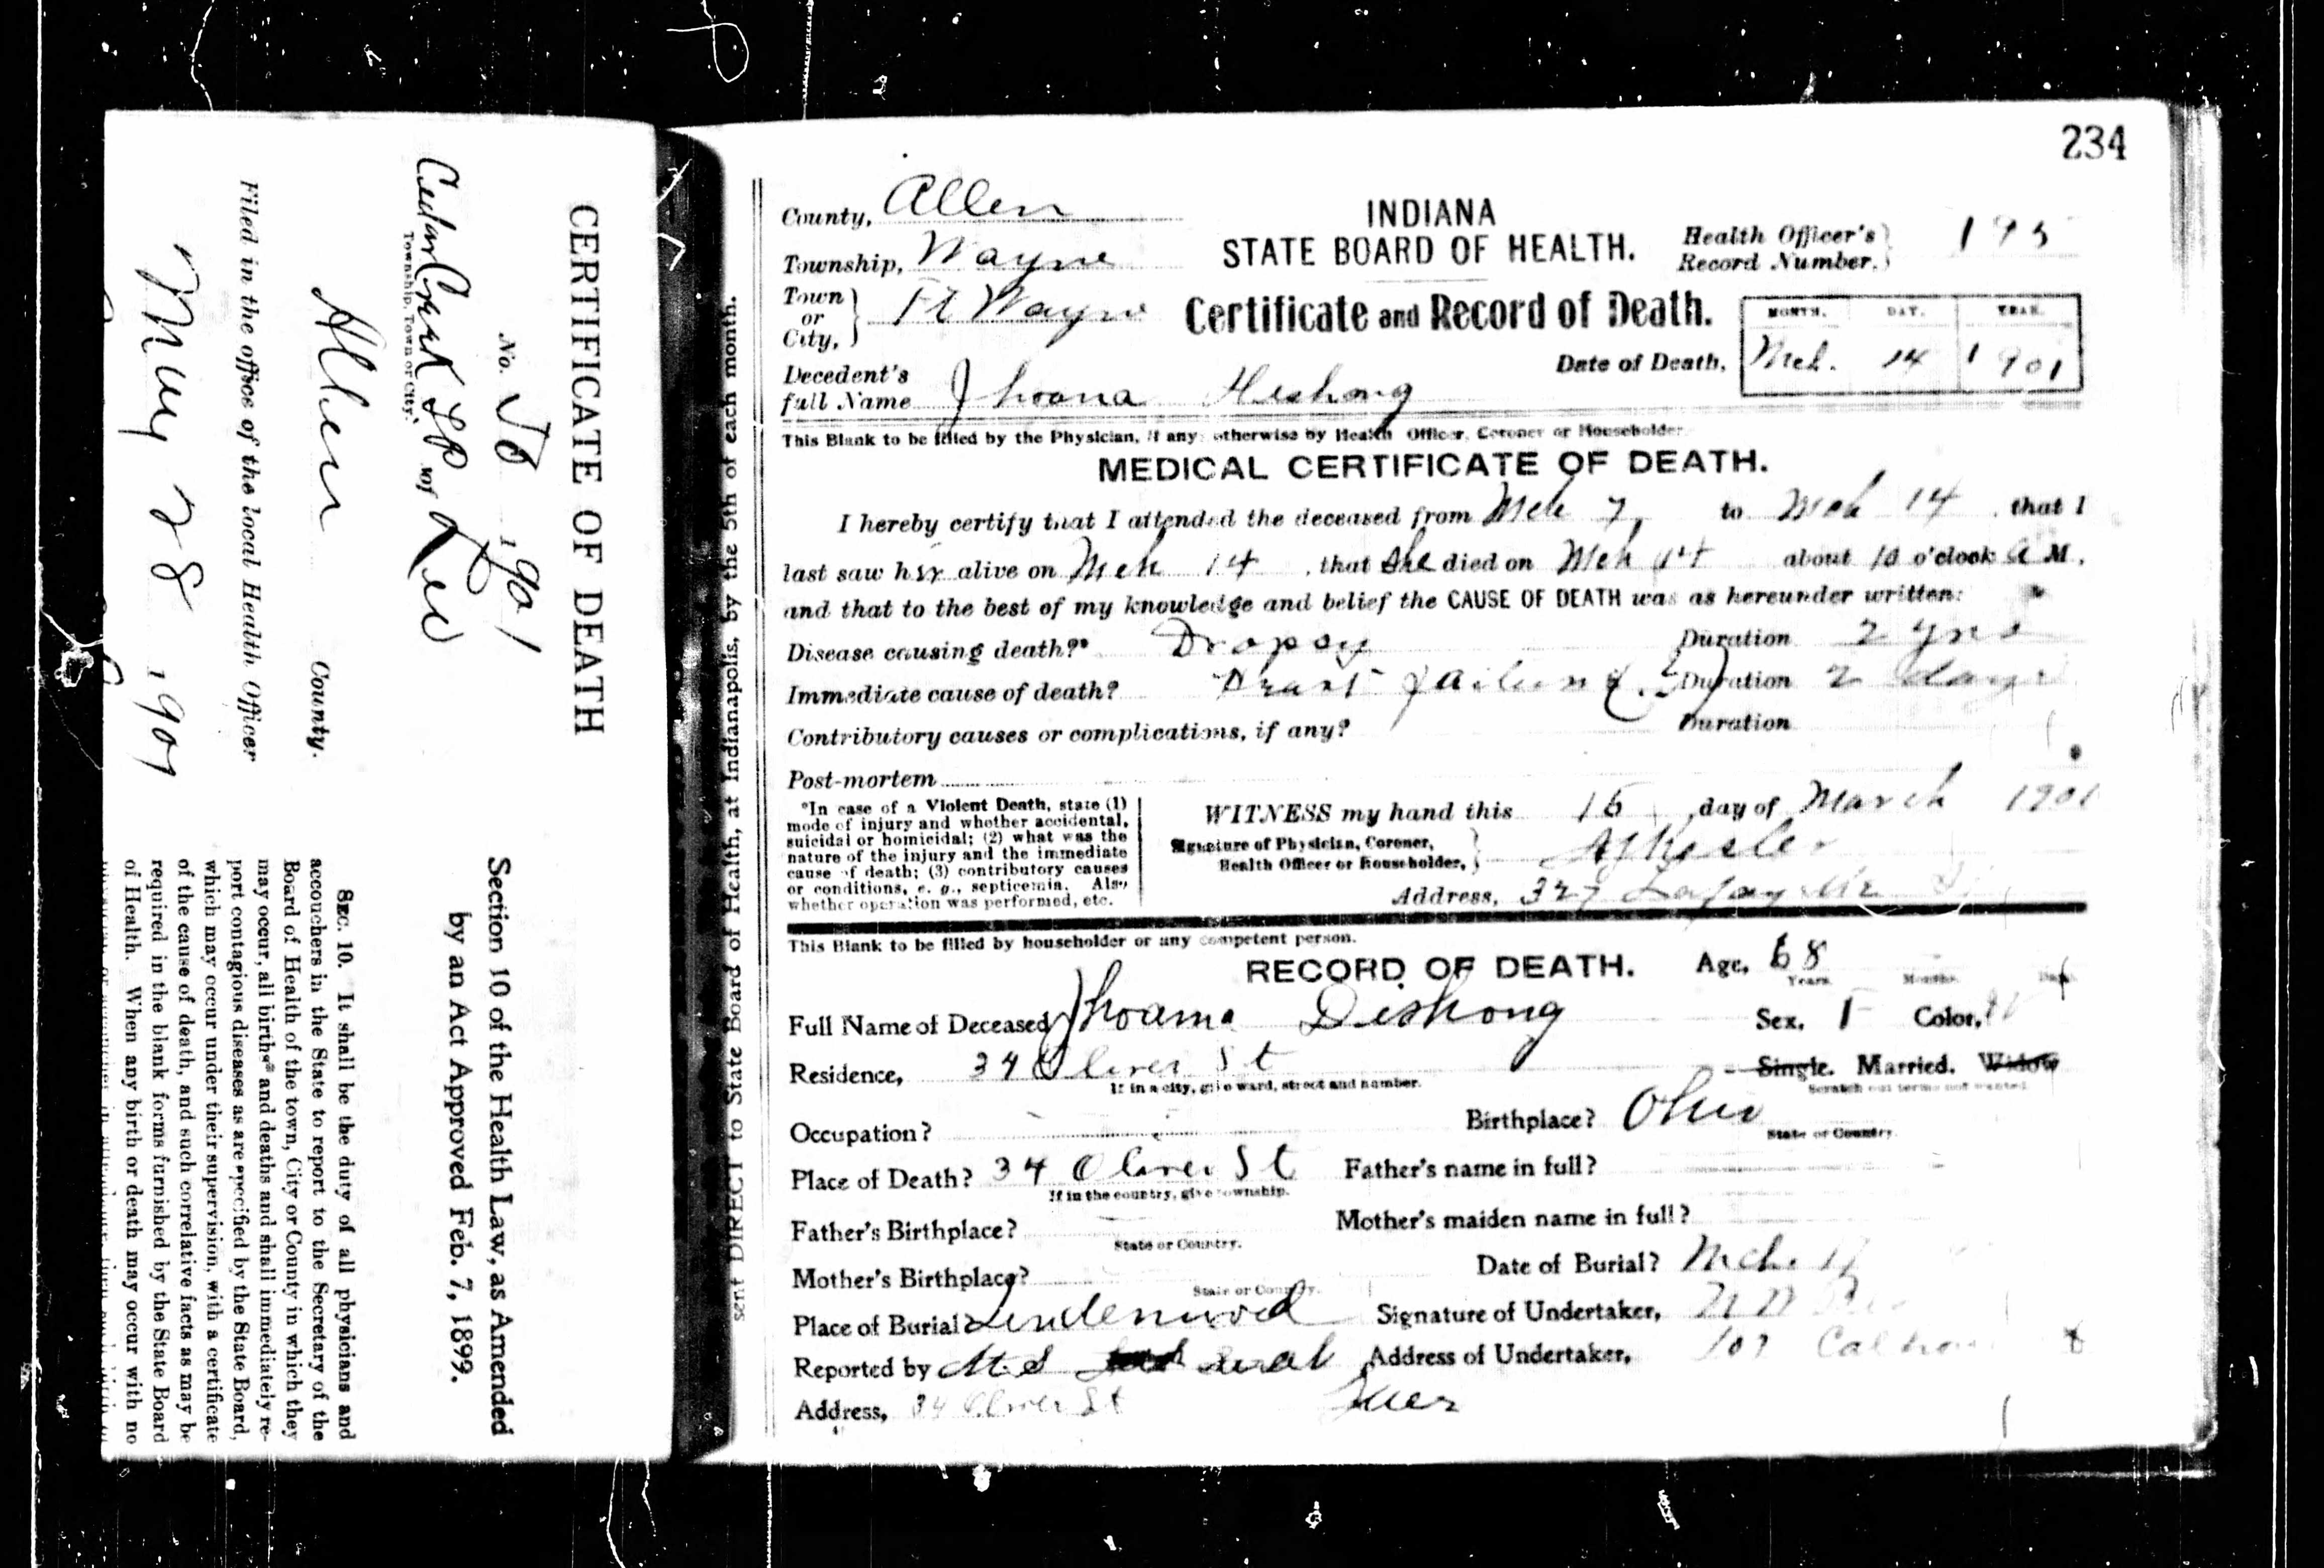 CERTIFICATE OF DEATH
No. 1901
Cedar Creek
Township, Town or City.
Allen County.
Filed in the office of the local Health Officer
28 1901
Section 10 of the Health Law, as Amended
by an Act Approved Feb. 7, 1899.
SEC. 10. It shall be the duty of all physicians and
accouchers in the State to report to the Secretary of the
Board of Health of the town, City or County in which they
may occur, all births and deaths and shall immediately re-
port contagious diseases as are specified by the State Board,
which may occur under their supervision, with a certificate
of the cause of death, and such correlative facts as may be
required in the blank forms furnished by the State Board
of Health. When any birth or death may occur with no
sent DIRECT to State Board of Health, at Indianapolis, by the 5th of each month.
234
County, Allen
INDIANA
STATE BOARD OF HEALTH.
Health Officer's Record Number. 195
Township, Wayne
Town or City, Ft Wayne
Certificate and Record of Death.
MONTH. DAY. YEAR.
Date of Death, Mch. 14 1901
Decedent's full Name Jhoana Heshong
This Blank to be filled by the Physician, if any; otherwise by Health Officer, Coroner or Householder.
MEDICAL CERTIFICATE OF DEATH.
I hereby certify that I attended the deceased from Mch 7, to Mch 14, that I
last saw her alive on Mch 14, that she died on Mch 14 about 10 o'clock A M.,
and that to the best of my knowledge and belief the CAUSE OF DEATH was as hereunder written:
Disease causing death?* Dropsy Duration 2 yrs
Immediate cause of death? Heart failure Duration 2 days
Contributory causes or complications, if any? Duration
Post-mortem
*In case of a Violent Death, state (1)
mode of injury and whether accidental,
suicidal or homicidal; (2) what was the
nature of the injury and the immediate
cause of death; (3) contributory causes
or conditions, e. g., septicemia. Also
whether operation was performed, etc.
WITNESS my hand this 15, day of March 1901
Signature of Physician, Coroner,
Health Officer or Householder, Kesler
Address, 327 Lafayette St
This Blank to be filled by householder or any competent person.
RECORD OF DEATH. Age, 68
Years. Months. Days.
Full Name of Deceased Jhoama Deshong Sex, F Color, W
Residence, 34 Oliver St Single. Married. Widow
If in a city, give ward, street and number. Scratch out terms not wanted.
Occupation? Birthplace? Ohio
State or Country.
Place of Death? 34 Oliver St Father's name in full?
If in the country, give township.
Father's Birthplace? Mother's maiden name in full?
State or Country.
Mother's Birthplace? Date of Burial? Mch.
State or Country.
Place of Burial? Lindenwood Signature of Undertaker,
Reported by Address of Undertaker, Calhoun
Address, 34 Oliver St